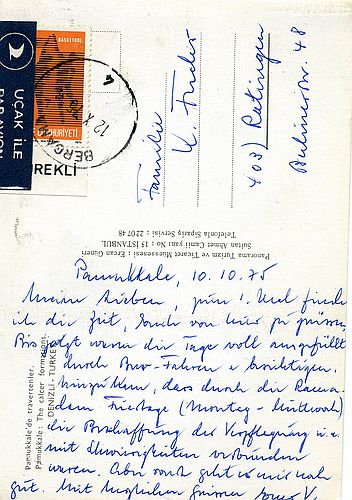 UÇAK İLE
PAR AVION
BASKETBOL
CUMHURİYETİ
BERGAMA
12 X
4
Familie
K.
403) Ratingen
Berlinerstr. 48
Panorama Turizm ve Ticaret Müessesesi : Ercan Güneri
Sultan Ahmet Camii yanı No : 15 İSTANBUL
Telefonla Sipariş Servisi : 22 07 48
Pamukkale de travertenler.
Pamukkale : The calcer formations.
DENİZLİ - TURKEY
Pamukkale, 10.10.75
Meine Lieben,
ich die Zeit, Euch von hier zu grüssen.
Bis jetzt waren die Tage voll ausgefüllt
durch Bus-Fahren + besichtigen.
hinzu kam, dass durch die
(Montag - Mittwoch)
die Beschaffung der Verpflegung u.a.
mit Schwierigkeiten verbunden
waren. Aber sonst geht es mir sehr
gut. Mit herzlichen Grüssen Euer V.